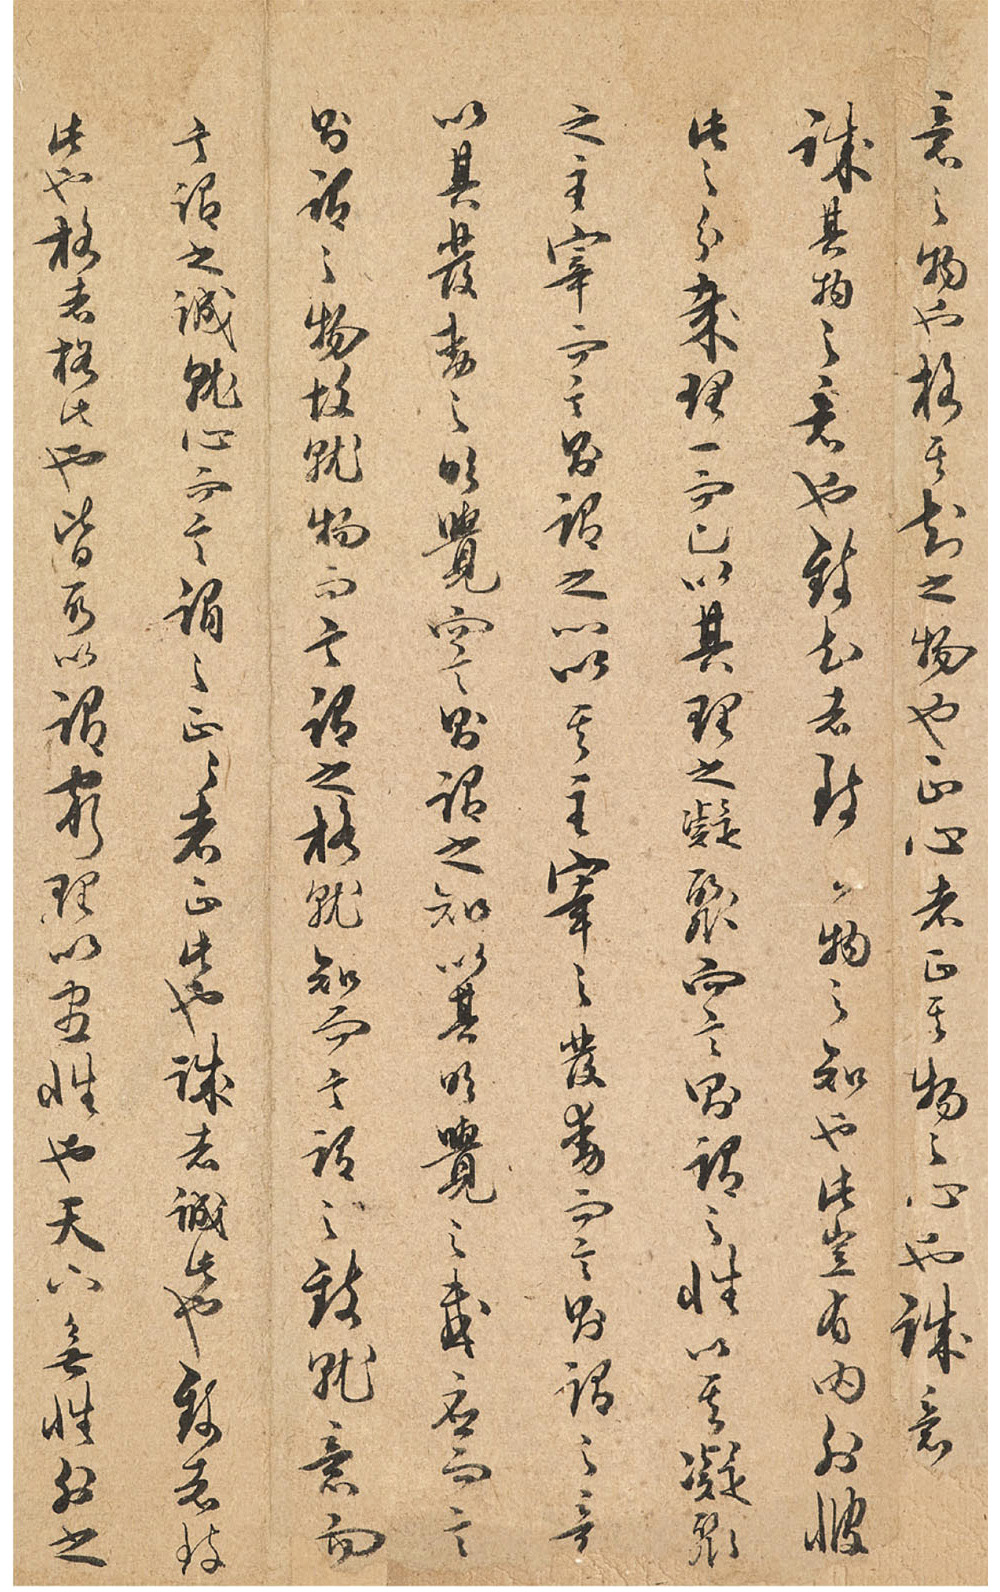 意之物也格其知之物也正心者正其物之心也誠意
誠其物之意也致知者致其物之知也此豈有內外彼
此之分哉理一而已以其理之凝聚而言則謂之性以其凝聚
之主宰而言則謂之心以其主宰之發動而言則謂之意
以其發動之明覺而言則謂之知以其明覺之感應而言
則謂之物故就物而言謂之格就知而言謂之致就意而
言謂之誠就心而言謂之正正者正此也誠者誠此也致者致
此也格者格此也皆所以謂窮理以盡性也天下無性外之